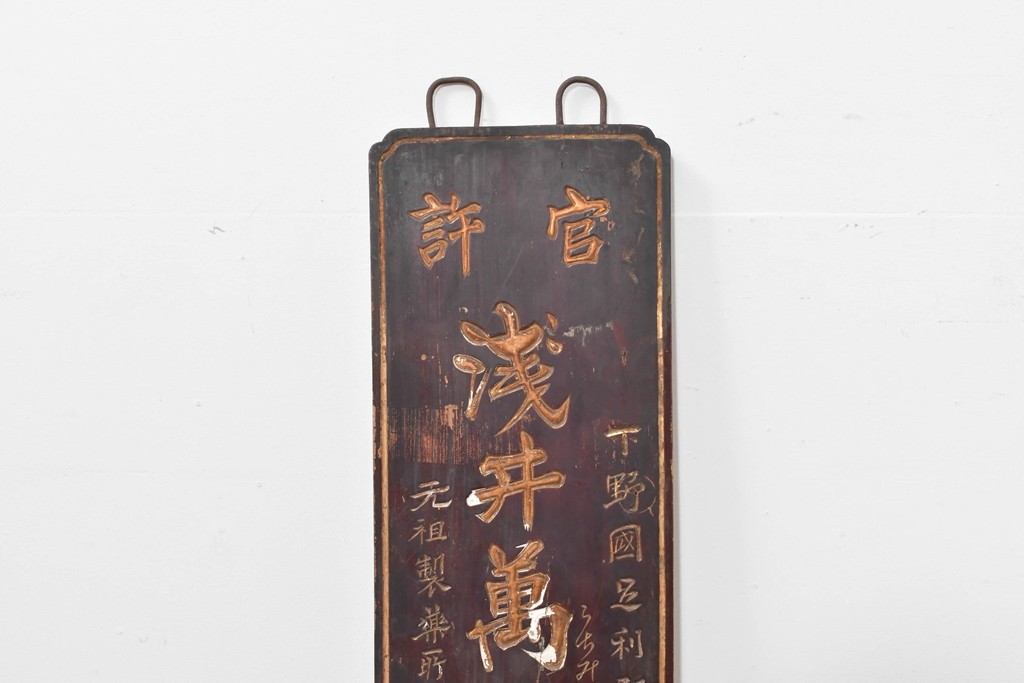 官許
下野國足利
淺井萬
元祖製薬所